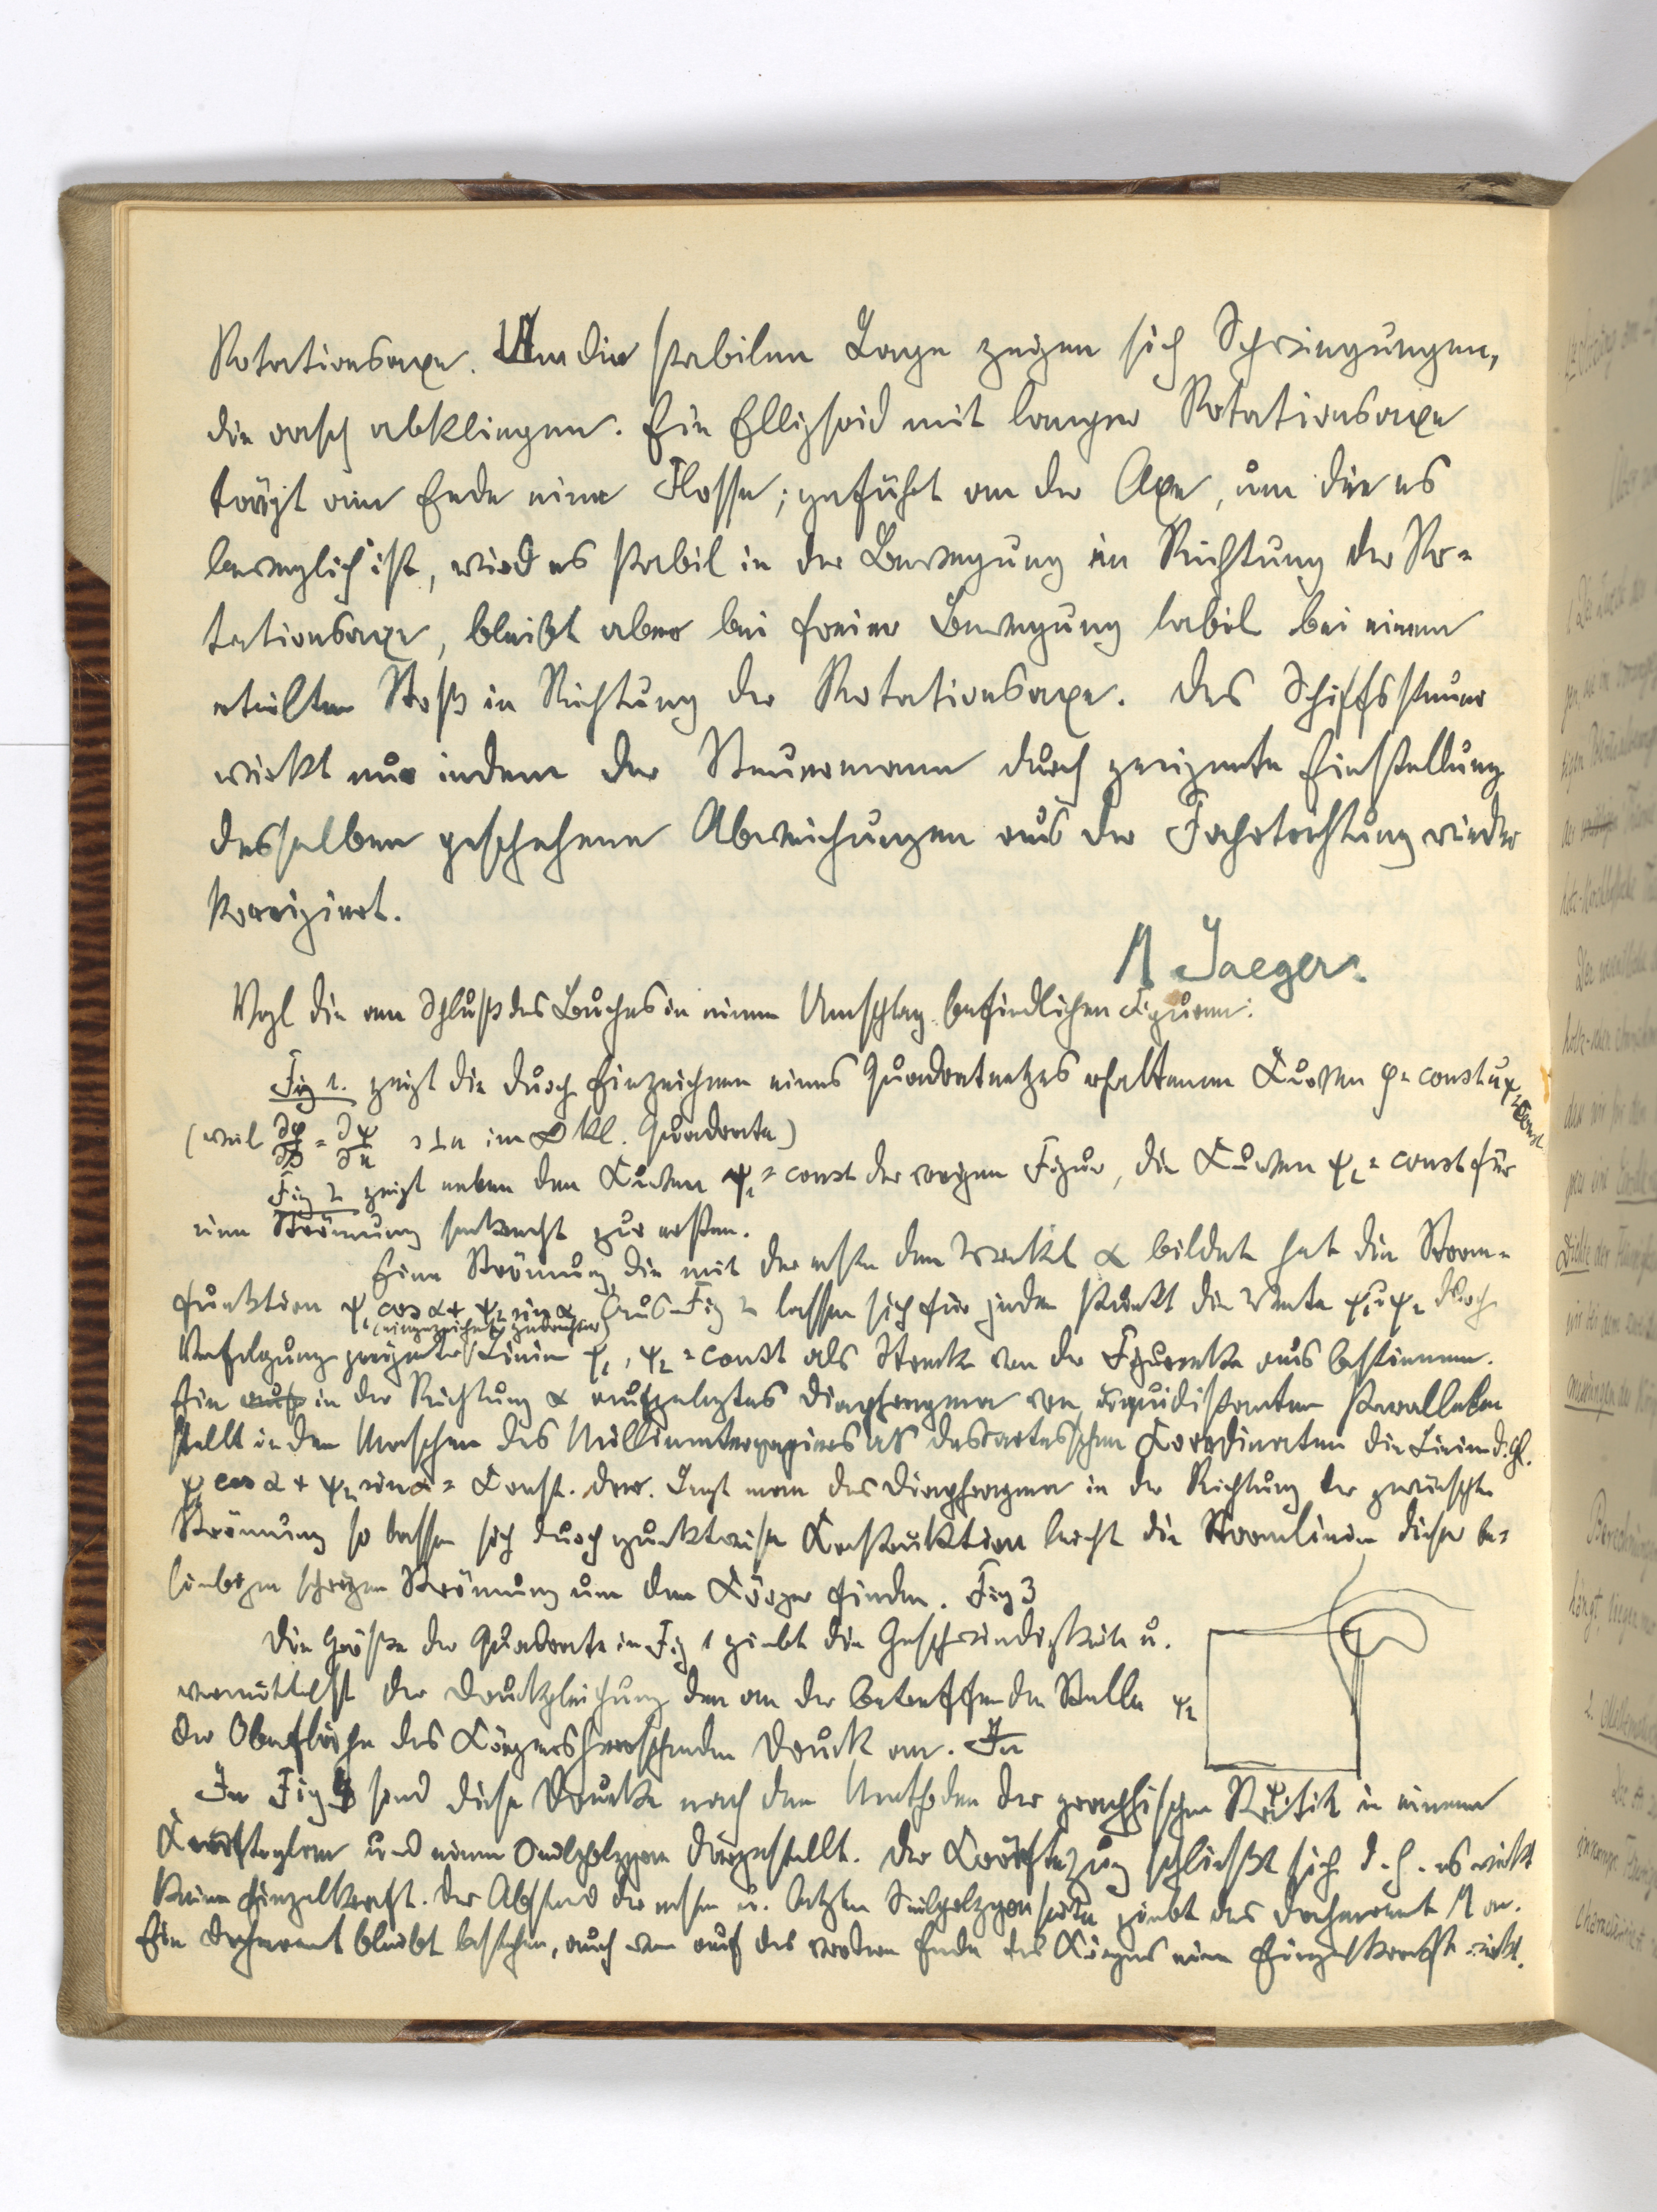 Rotationsaxe. Um die stabilen Lage zeigen sich Schwingungen,
die rasch abklingen. Ein Ellipsoid mit langer Rotationsaxe
trägt am Ende eine Flosse; geführt an der Axe, um die es
beweglich ist, wird es stabil in der Bewegung in Richtung der Ro-
tationsaxe, bleibt aber bei freier Bewegung labil bei einem
erteilten Stoß in Richtung der Rotationsaxe. Das Schiffssteuer
wirkt nur indem der Steuermann durch geeignete Einstellung
desselben geschehene Abweichungen aus der Fahrtrichtung wieder
korrigiert.
M Jaeger.
Vgl die am Schluß des Buches in einem Umschlag befindlichen Figuren:
Fig 1. zeigt die durch Einzeichnen eines Quadratnetzes erhaltenen Kurven φ = const u ψ = Const
(weil ∂φ/∂s = ∂ψ/∂n s⊥n im ∞ kl. Quadrate)
Fig 2 zeigt neben den Kurven ψ₁ = const der vorigen Figur, die Kurven ψ₂ = const für
eine Strömung senkrecht zur ersten.
Eine Strömung, die mit der ersten den Winkel α bildet hat die Strom-
funktion ψ₁ cos α + ψ₂ sin α. Aus Fig 2 lassen sich für jeden Punkt die Werte ψ₁ u ψ₂ durch
Verfolgung geeigneter Linien ψ₁, ψ₂ = const als Strecke von der Figurenecke aus bestimmen.
Ein in der Richtung α aufgelegtes Diaphragma von äquidistanten Parallelen
stellt in den Maschen des Millimeterpapieres als descartesschen Koordinaten die Linien d. Gl.
ψ₁ cos α + ψ₂ sin α = Konst. dar. Legt man das Diaphragma in der Richtung der gewünschten
Strömung so lassen sich durch punktweise Konstruktion leicht die Stromlinien dieser be-
liebigen schrägen Strömung um den Körper finden. Fig 3
Die Größe der Quadrate in Fig 1 giebt die Geschwindigkeit u.
vermittelst der Druckgleichung den an der betreffenden Stelle
der Oberfläche des Körpers herrschenden Druck an. In
ψ₂
In Fig 4 sind diese Drucke nach den Methoden der graphischen Statik in einem
Kräfteplan und einem Seilpolygon dargestellt. Der Kräftezug schließt sich d. h. es wirkt
keine Einzelkraft. Der Abstand der ersten u. letzten Seilpolygonseite giebt das Drehmoment M an.
Ein Drehmoment bleibt bestehen, auch wenn auf das vordere Ende des Körpers eine Einzelkraft wirkt.